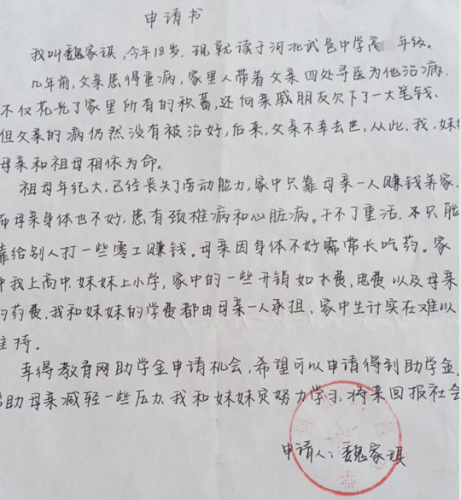 申请书
我叫魏家琪,今年18岁,现就读于河北武邑中学高 年级。
几年前,父亲患得重病,家里人带着父亲四处寻医为他治病,
不仅花光了家里所有的积蓄,还向亲戚朋友欠下了一大笔钱,
但父亲的病仍然没有被治好,后来,父亲不幸去世,从此,我、妹妹
母亲和祖母相依为命。
祖母年纪大,已经丧失了劳动能力,家中只靠母亲一人赚钱养家,
而母亲身体也不好,患有颈椎病和心脏病。干不了重活,不只能
靠给别人打一些零工赚钱。母亲因身体不好需常长吃药。家
中我上高中妹妹上小学,家中的一些开销如水费、电费以及母亲
的药费,我和妹妹的学费都由母亲一人承担,家中生计实在难以
维持。
幸得教育网助学金申请机会,希望可以申请得到助学金,
帮助母亲减轻一些压力,我和妹妹定努力学习,将来回报社会
申请人:魏家琪